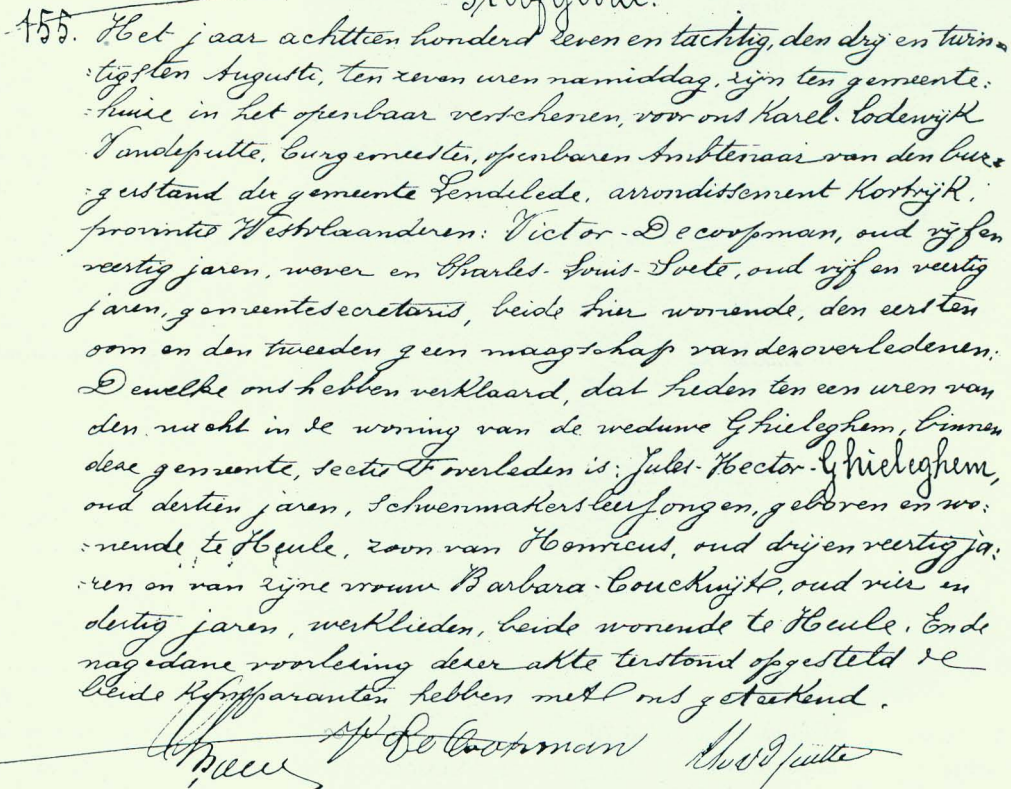 155. Het jaar achttien honderd zeven en tachtig, den drij en twin=
:tigsten Augusti, ten zeven uren namiddag, zijn ten gemeente:
:huize in het openbaar verschenen, voor ons Karel-Lodewijk
Vandeputte, burgemeester, openbaren Ambtenaar van den bur=
:gerstand der gemeente Lendelede, arrondissement Kortrijk,
provintie Westvlaanderen: Victor-Decoopman, oud vijf en
veertig jaren, wever en Charles-Louis-Soete, oud vijf en veertig
jaren, gemeentesecretaris, beide hier wonende, den eersten
oom en den tweeden geen maagschap van den overledenen:
Dewelke ons hebben verklaard, dat heden ten een uren van
den nacht in de woning van de weduwe Ghieleghem, binnen
deze gemeente, sectie F overleden is: Jules-Hector-Ghieleghem,
oud dertien jaren, schoenmakersleerjongen, geboren en wo:
:nende te Heule, zoon van Henricus, oud drij en veertig ja:
:ren en van zijne vrouw Barbara-Couckuijt, oud vier en
dertig jaren, werklieden, beide wonende te Heule. En de
nagedane voorlezing dezer akte terstond opgesteld de
beide komparanten hebben met ons geteekend.
V DeCoopman